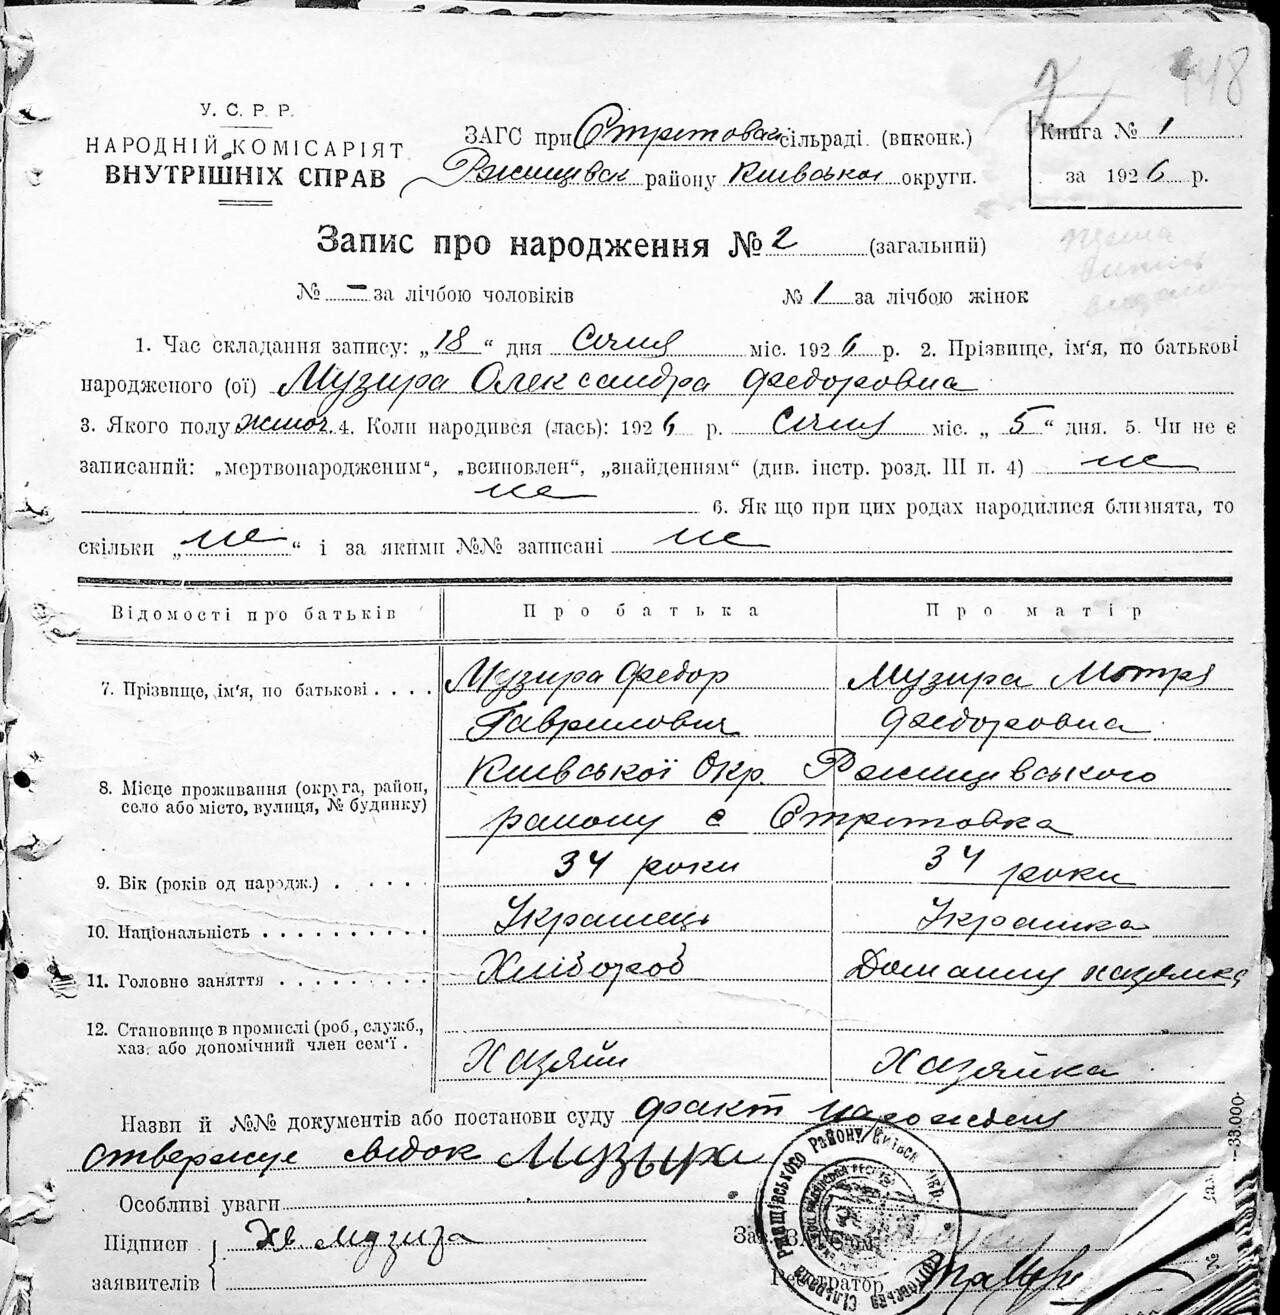 448
У. С. Р. Р.
НАРОДНІЙ КОМІСАРІЯТ
ВНУТРІШНІХ СПРАВ
ЗАГС при Стрітовськ сільраді (виконк.)
Ржищевськ району Київської округи.
Книга № 1
за 1926 р.
Запис про народження № 2 (загальний)
№ – за лічбою чоловіків № 1 за лічбою жінок
1. Час складання запису: „18“ дня Січня міс. 1926 р. 2. Прізвище, ім'я, по батькові
народженого (ої) Музира Олександра Федоровна
3. Якого полу жіноч. 4. Коли народився (лась): 1926 р. Січня міс. „5“ дня. 5. Чи не є
записаний: „мертвонародженим“, „всиновлен“, „знайденням“ (див. інстр. розд. III п. 4) не
не 6. Як що при цих родах народилися близнята, то
скільки „не“ і за якими №№ записані не
Відомості про батьків Про батька Про матір
7. Прізвище, ім'я, по батькові . . . . Музира Федор Музира Мотря
Гаврилович Федоровна
8. Місце проживання (округа, район, село або місто, вулиця, № будинку) Київської Окр. Ржищевського
району с Стрітовка
9. Вік (років од народж.) . . . . . 34 роки 34 роки
10. Національність . . . . . . . . . . Українець Українка
11. Головне заняття . . . . . . . . . Хлібороб Домашню хазяйка
12. Становище в промислі (роб., служб., хаз. або допомічний член сем'ї . Хазяїн Хазяйка
Назви й №№ документів або постанови суду факт народження
ствержує свідок Музыра
Особливі уваги
Підписи заявителів Хв Музира
Зав. ЗАГС'ом
Реєстратор
33.000